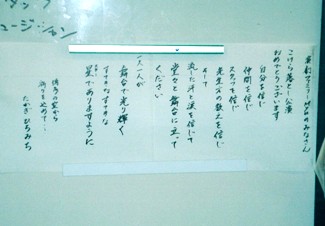 タップ
ミュージシャン
みなさん
こけら落とし公演
おめでとうございます
自分を信じ
スタッフを信じ
仲間を信じ
先生方の教えを信じ
そして
流した汗と涙を信じて
堂々と舞台に立って
ください
一人一人が
舞台で光り輝く
すてきなすてきな
星でありますように
たかぎひろみち